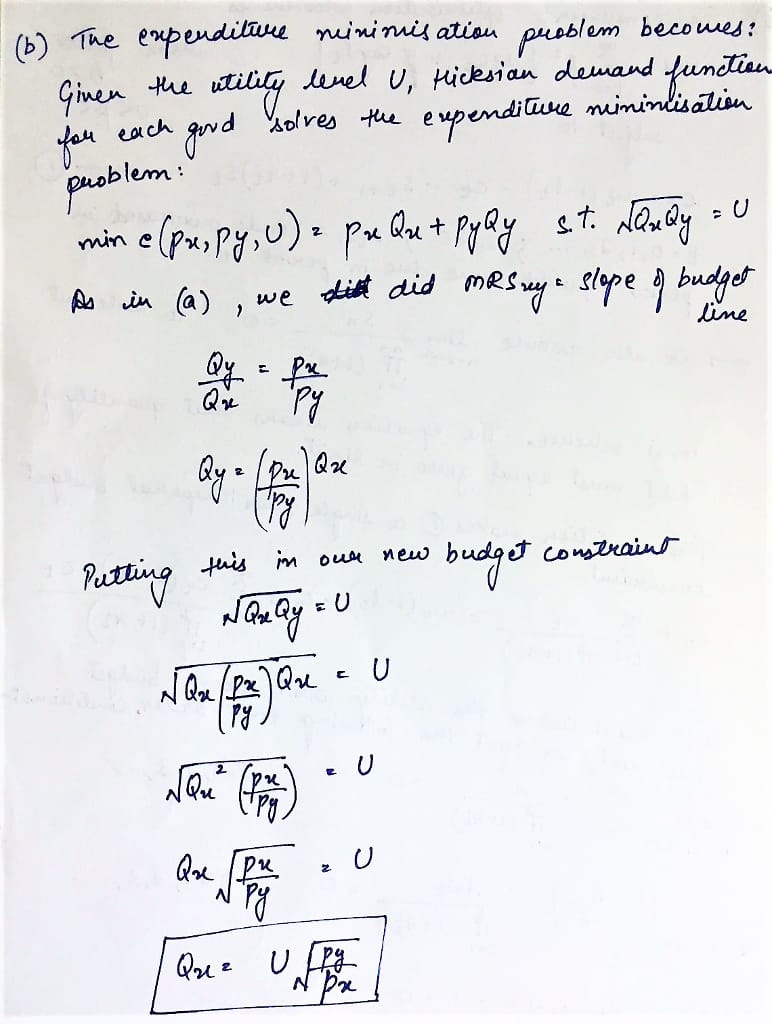 (b) The expenditure minimisation problem becomes:
Given the utility level U, Hicksian demand function
for each good solves the expenditure minimisation
problem:
min e(px, py, U) = px Qx + py Qy s.t. √QxQy = U
As in (a), we did MRSxy = slope of budget
line
Qy/Qx = px/py
Qy = (px/py) Qx
Putting this in our new budget constraint
√QxQy = U
√Qx (px/py) Qx = U
√Qx² (px/py) = U
Qx √px/py = U
Qx = U √py/px